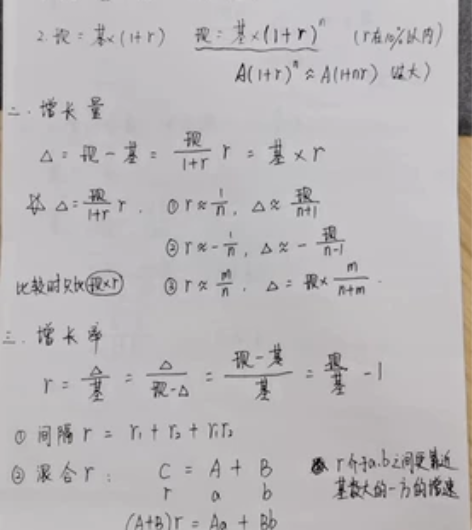 2. 现 = 基×(1+r) 现 = 基×(1+r)ⁿ (r在10%以内)
A(1+r)ⁿ ≈ A(1+nr) 偏大)
二. 增长量
△ = 现 - 基 = 现/(1+r) r = 基×r
☆ △ = 现/(1+r) r. ① r ≈ 1/n, △ ≈ 现/(n+1)
② r ≈ -1/n, △ ≈ - 现/(n-1)
比较时只比(现×r) ③ r ≈ m/n, △ = 现× m/(n+m).
三. 增长率
r = △/基 = △/(现-△) = (现-基)/基 = 现/基 - 1
① 间隔 r = r₁ + r₂ + r₁r₂
② 混合 r: C = A + B r介于a.b之间更靠近
r a b 基数大的一方的增速
(A+B)r = Aa + Bb